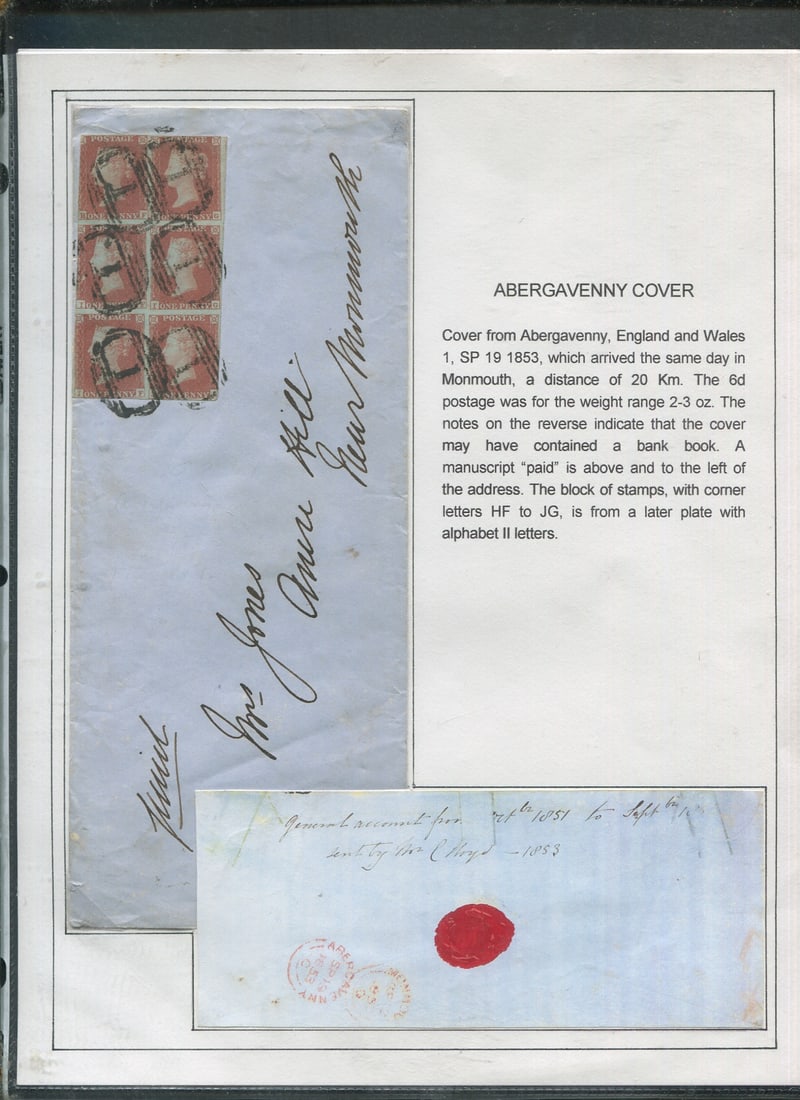 ABERGAVENNY COVER
Cover from Abergavenny, England and Wales
1, SP 19 1853, which arrived the same day in
Monmouth, a distance of 20 Km. The 6d
postage was for the weight range 2-3 oz. The
notes on the reverse indicate that the cover
may have contained a bank book. A
manuscript “paid” is above and to the left of
the address. The block of stamps, with corner
letters HF to JG, is from a later plate with
alphabet II letters.
POSTAGE
ONE PENNY
ONE PENNY
ONE PENNY
POSTAGE
POSTAGE
paid
Mrs Jones
Hill
Near Monmouth
General account from 1851 to Septbr
sent by Mr Lloyd - 1853
ABERGAVENNY
SP 19